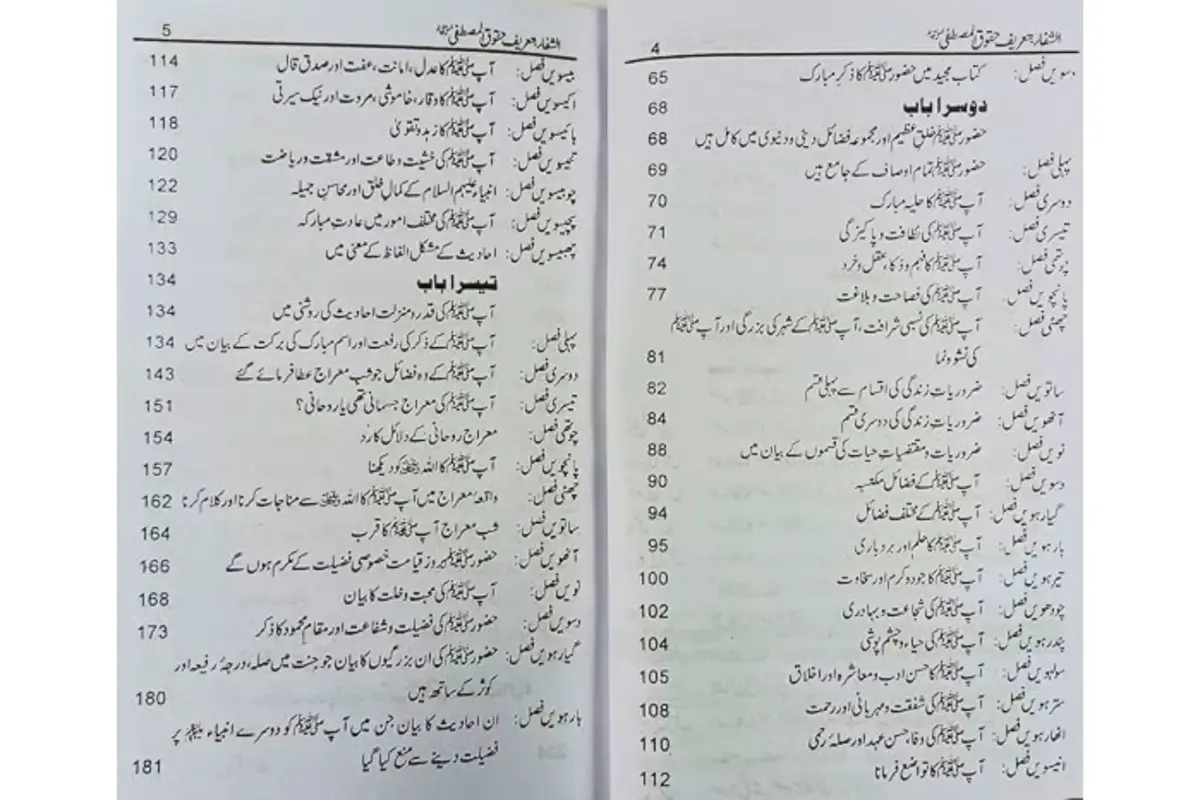 الشفاء بتعریف حقوق المصطفیٰ ﷺ
4
دسویں فصل: کتاب مجید میں حضور ﷺ کا ذکر مبارک 65
دوسرا باب 68
حضور ﷺ خلق عظیم اور مجموعہ فضائل دینی و دنیوی میں کامل ہیں 68
پہلی فصل: حضور ﷺ تمام اوصاف کے جامع ہیں 69
دوسری فصل: آپ ﷺ کا حلیہ مبارک 70
تیسری فصل: آپ ﷺ کی نظافت و پاکیزگی 71
چوتھی فصل: آپ ﷺ کا فہم و ذکا، عقل و خرد 74
پانچویں فصل: آپ ﷺ کی فصاحت و بلاغت 77
چھٹی فصل: آپ ﷺ کی نسبی شرافت، آپ ﷺ کے شہر کی بزرگی اور آپ ﷺ
کی نشوونما 81
ساتویں فصل: ضروریات زندگی کی اقسام سے پہلی قسم 82
آٹھویں فصل: ضروریات زندگی کی دوسری قسم 84
نویں فصل: ضروریات و مقتضیات حیات کی قسموں کے بیان میں 88
دسویں فصل: آپ ﷺ کے فضائل مکتسبہ 90
گیارہویں فصل: آپ ﷺ کے مختلف فضائل 94
بارہویں فصل: آپ ﷺ کا حلم اور بردباری 95
تیرہویں فصل: آپ ﷺ کا جود و کرم اور سخاوت 100
چودھویں فصل: آپ ﷺ کی شجاعت و بہادری 102
پندرہویں فصل: آپ ﷺ کی حیاء و چشم پوشی 104
سولہویں فصل: آپ ﷺ کا حسن ادب و معاشرہ اور اخلاق 105
سترہویں فصل: آپ ﷺ کی شفقت و مہربانی اور رحمت 108
اٹھارہویں فصل: آپ ﷺ کی وفا، حسن عہد اور صلہ رحمی 110
انیسویں فصل: آپ ﷺ کا تواضع فرمانا 112
الشفاء بتعریف حقوق المصطفیٰ ﷺ
5
بیسویں فصل: آپ ﷺ کا عدل، امانت، عفت اور صدق قال 114
اکیسویں فصل: آپ ﷺ کا وقار، خاموشی، مروت اور نیک سیرتی 117
بائیسویں فصل: آپ ﷺ کا زہد و تقویٰ 118
تئیسویں فصل: آپ ﷺ کی خشیت و طاعت اور مشقت و ریاضت 120
چوبیسویں فصل: انبیاء علیہم السلام کے کمال خلق اور محاسن جمیلہ 122
پچیسویں فصل: آپ ﷺ کی مختلف امور میں عادت مبارکہ 129
چھبیسویں فصل: احادیث کے مشکل الفاظ کے معنی میں 133
تیسرا باب 134
آپ ﷺ کی قدر و منزلت احادیث کی روشنی میں 134
پہلی فصل: آپ ﷺ کے ذکر کی رفعت اور اسم مبارک کی برکت کے بیان میں 134
دوسری فصل: آپ ﷺ کے وہ فضائل جو شب معراج عطا فرمائے گئے 143
تیسری فصل: آپ ﷺ کی معراج جسمانی تھی یا روحانی؟ 151
چوتھی فصل: معراج روحانی کے دلائل کا رد 154
پانچویں فصل: آپ ﷺ کا اللہ ﷻ کو دیکھنا 157
چھٹی فصل: واقعہ معراج میں آپ ﷺ کا اللہ ﷻ سے مناجات کرنا اور کلام کرنا 162
ساتویں فصل: شب معراج آپ ﷺ کا قرب 164
آٹھویں فصل: حضور ﷺ بروز قیامت خصوصی فضیلت کے مکرم ہوں گے 166
نویں فصل: آپ ﷺ کی محبت و خلت کا بیان 168
دسویں فصل: حضور ﷺ کی فضیلت و شفاعت اور مقام محمود کا ذکر 173
گیارہویں فصل: حضور ﷺ کی ان بزرگیوں کا بیان جو جنت میں صلہ، درجہ رفیعہ اور
کوثر کے ساتھ ہیں 180
بارہویں فصل: ان احادیث کا بیان جن میں آپ ﷺ کو دوسرے انبیاء علیہم السلام پر
فضیلت دینے سے منع کیا گیا 181